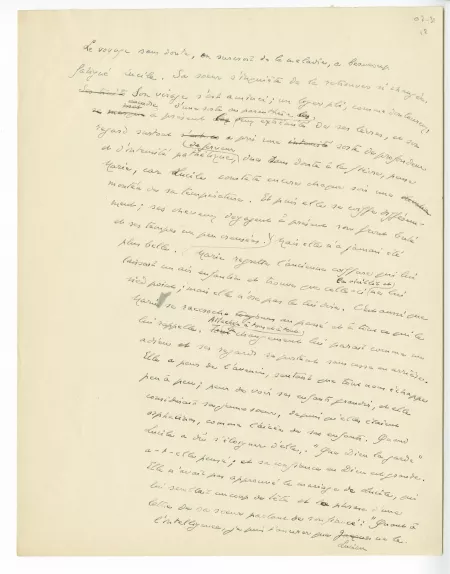 Le voyage sans doute, au surcroît de la maladie, a beaucoup
fatigué Lucile. Sa sœur s'inquiète de la retrouver si changée.
Son visage s'est aminci; un léger pli, comme douloureux,
à présent de ses lèvres, et son
regard surtout a pris une sorte de profondeur
et d'intensité pathétique, due sans doute à la fièvre, pense
Marie, car Lucile constate encore chaque soir une
montée de sa température. Et puis elle se coiffe différem-
ment; ses cheveux dégagent à présent son front bombé
et ses tempes un peu creusées. Mais elle n'a jamais été
plus belle. Marie regrette l'ancienne coiffure qui lui
laissait un air enfantin et trouve que celle-ci la vieillit et
sied moins; mais elle n'ose pas le lui dire. C'est aussi que
Marie se raccroche au passé et à tout ce qui le
lui rappelle. Tout changement lui paraît comme un
adieu et ses regards se portent sans cesse en arrière.
Elle a peur de l'avenir, sentant que tout nous échappe
peu à peu; peur de voir ses enfants grandir, et elle
considérait sa jeune sœur, depuis qu'elles étaient
orphelines, comme l'aînée de ses enfants. Quand
Lucile a dû s'éloigner d'elle,: "Que Dieu la garde"
a-t-elle pensé; et sa confiance en Dieu est grande.
Elle n'avait pas approuvé le mariage de Lucile, qui
lui semblait un coup de tête et la phrase d'une
lettre de sa sœur parlant de son fiancé: "Quant à
l'intelligence, je puis t'assurer que
Lucien